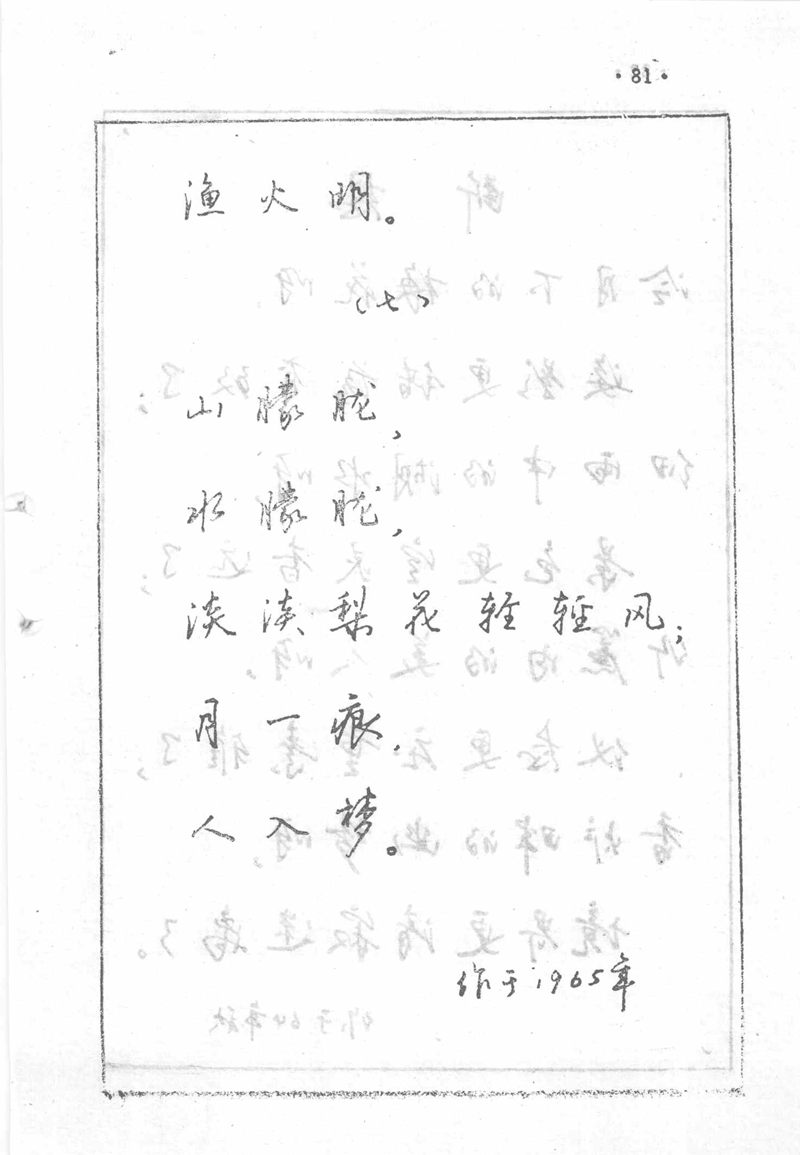 ·81·
渔火明。
(七)
山朦胧,
水朦胧,
淡淡梨花轻轻风;
月一痕,
人入梦。
作于1965年